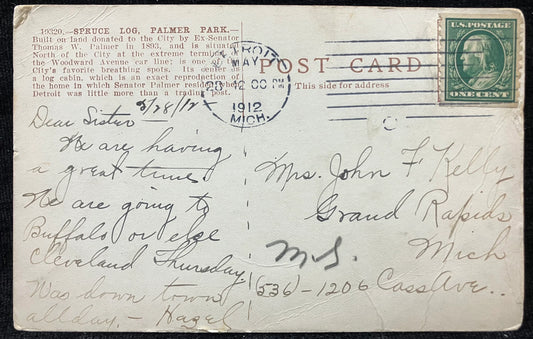 19320.—SPRUCE LOG, PALMER PARK.—
Built on land donated to the City by Ex-Senator
Thomas W. Palmer in 1893, and is situated
North of the City at the extreme terminal
the Woodward Avenue car line; is one of the
City's favorite breathing spots. Its
a log cabin, which is an exact reproduction of
the home in which Senator Palmer resided when
Detroit was little more than a trading post.
DETROIT
MAY
28 12 00 PM
1912
MICH.
POST CARD
This side for address
U.S. POSTAGE
ONE CENT
5/28/12
Dear Sister
We are having
a great time.
We are going to
Buffalo or else
Cleveland Thursday
Was down town
all day. - Hazel
Mrs. John F Kelly
Grand Rapids
Mich
M.S.
(536)-1206 Cass Ave..